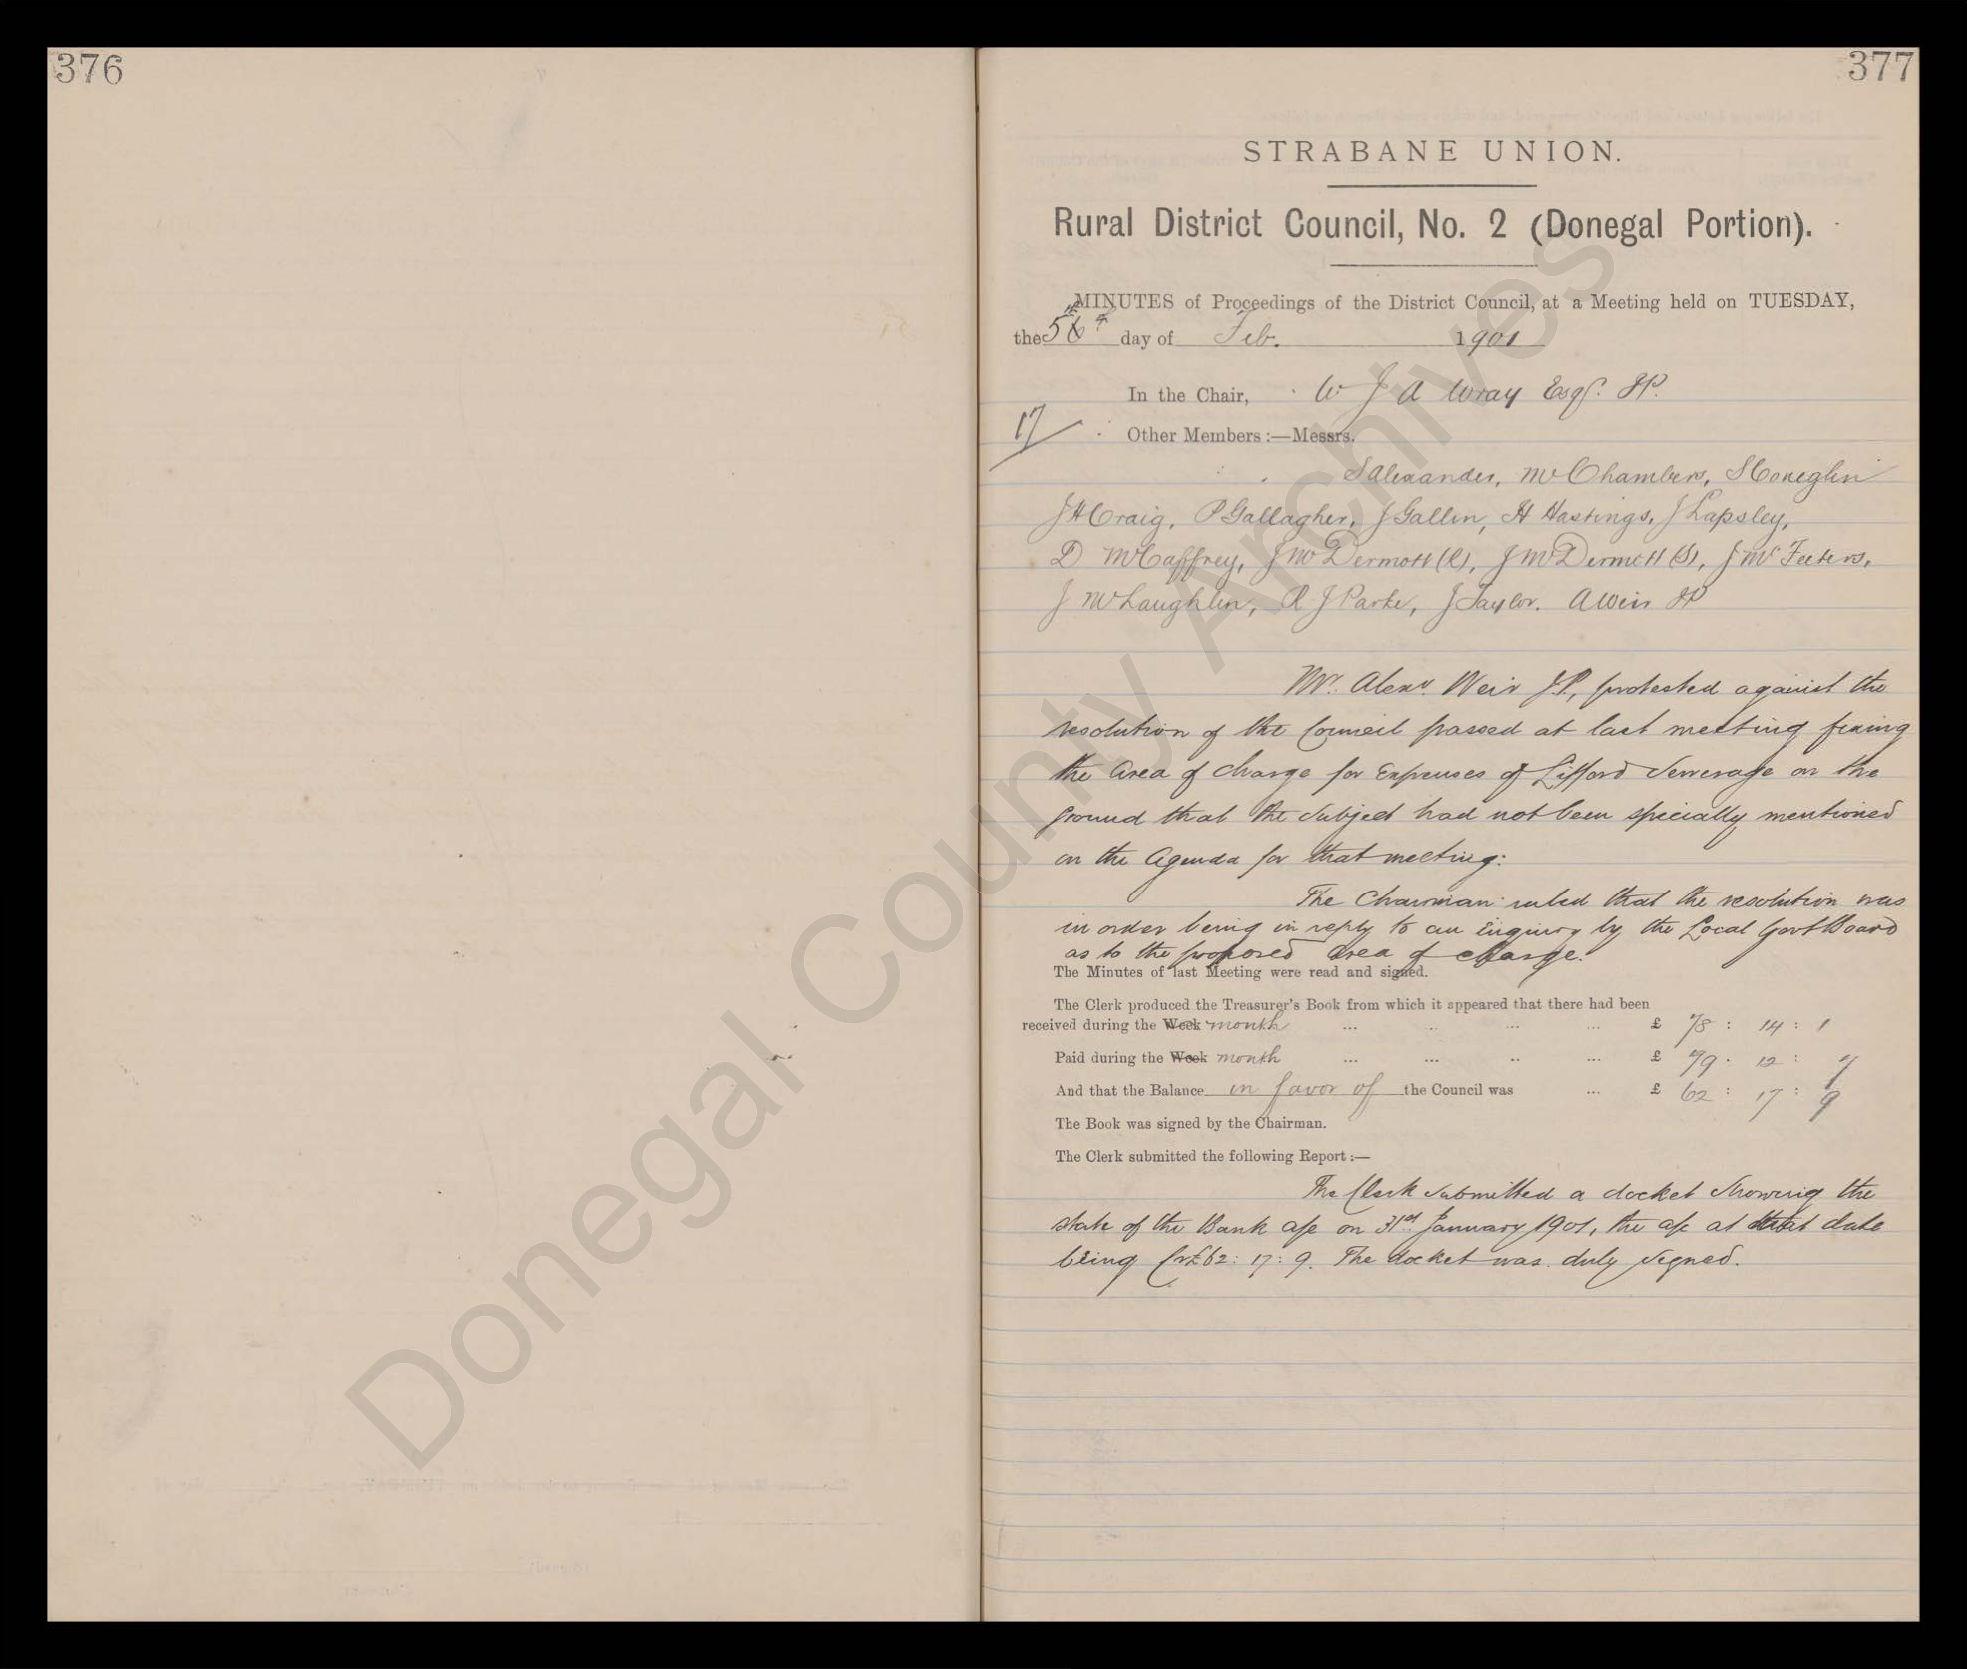 376
377
STRABANE UNION.
Rural District Council, No. 2 (Donegal Portion).
MINUTES of Proceedings of the District Council, at a Meeting held on TUESDAY,
the 5th day of Feb. 1901
In the Chair, W J A Wray Esqr. JP.
17
Other Members :—Messrs.
S Alexander, Mc Chambers, S Coneglin
J H Craig, P Gallagher, J Gallen, H Hastings, J Lapsley,
D McCaffrey, J McDermott (R), J McDermott (S), J McFeeters,
J McLaughlin, R J Parke, J Taylor. A Weir JP
Mr. Alexr. Weir J.P., protested against the
resolution of the Council passed at last meeting fixing
the Area of Charge for Expenses of Lifford Sewerage on the
ground that the Subject had not been specially mentioned
on the Agenda for that meeting:
The Chairman ruled that the resolution was
in order being in reply to an Inquiry by the Local Govt Board
as to the proposed Area of Charge.
The Minutes of last Meeting were read and signed.
The Clerk produced the Treasurer's Book from which it appeared that there had been
received during the Week month ... ... ... ... £ 78 : 14 : 1
Paid during the Week month ... ... ... ... £ 79 : 12 : 7
And that the Balance in favor of the Council was ... £ 62 : 17 : 9
The Book was signed by the Chairman.
The Clerk submitted the following Report :—
The Clerk submitted a docket showing the
state of the Bank a/c on 31st January 1901, the a/c at that date
being Cr £62 : 17 : 9. The docket was duly signed.
Donegal County Archives